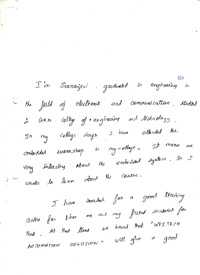 I'm , graduated in engineering in
the field of electronic and communication, studied
in college of engineering and technology.
In my college days I have attended the
embedded workshop in my college. It makes me
very interesting about the embedded system. So I
wants to learn about the course.
I have searched for a good training
center for that me and my friend searched for
that. At that time we heard that "WISTECH
AUTOMATION SOLUTION" will give a good